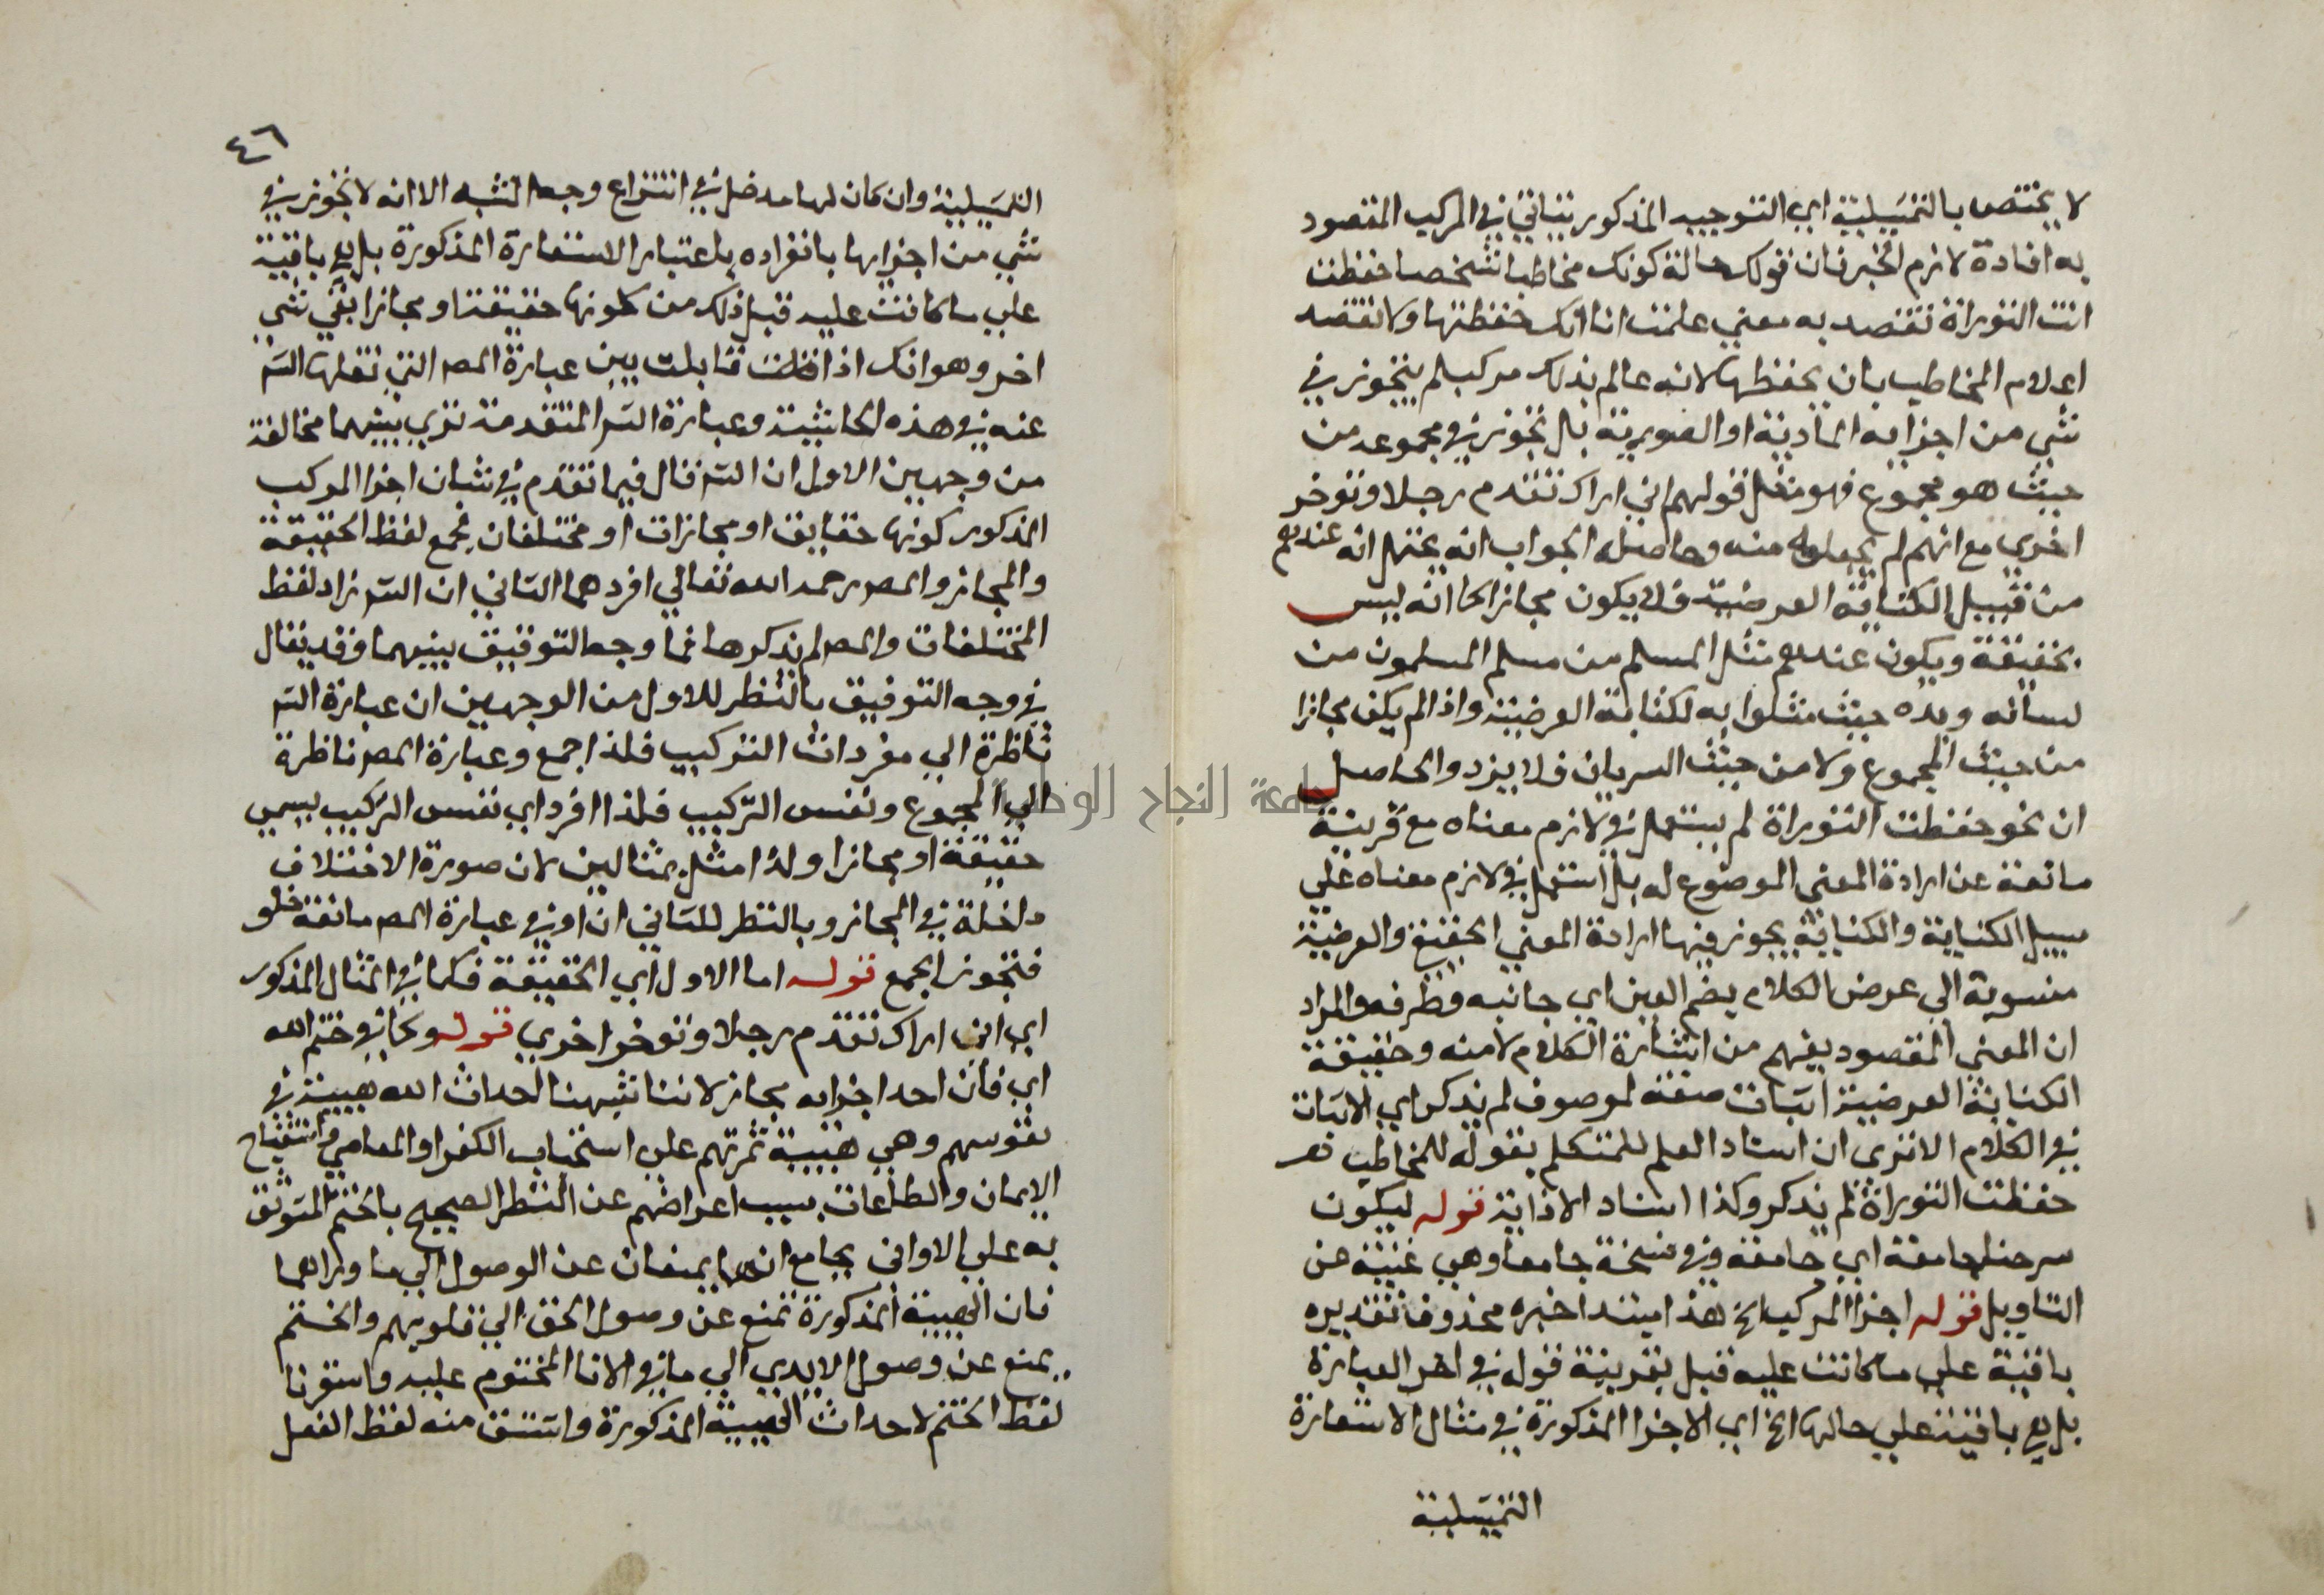 لا يختص بالتمثيلية اي التوجيه المذكور يتاتي في المركب المقصود
به افادة لازم الخبر فان قولك حالة كونك مخاطبا شخصا حفظت
انت التوراة تقصد به معني علمت انا انك حفظتها ولا تقصد
اعلام المخاطب بان يحفظها لانه عالم بذلك مركب لم يتجوز في
شي من اجزايه المادية او الصورية بل تجوز في مجموعه من
حيث هو مجموع فهو مثل قولهم اني اراك تقدم رجلا وتوخر
اخري مع انهم لم يجعلوه منه وحاصل الجواب انه يحتمل انه عندهم
من قبيل الكناية العرضية فلا يكون مجازا كما انه ليس
بحقيقة ويكون عندهم مثل المسلم من سلم المسلمون من
لسانه ويده حيث مثلوا به لكناية العرضية واذا لم يكن مجازا
من حيث المجموع ولا من حيث السريان فلا يرد والحاصل
ان نحو حفظت التوراة لم يستعمل في لازم معناه مع قرينة
مانعة عن ارادة المعني الموضوع له بل استعمل في لازم معناه علي
سبيل الكناية والكناية يجوز فيها ارادة المعني الحقيقي والعرضية
منسوبة الي عرض الكلام بضم العين اي جانبه وطرفه والمراد
ان المعني المقصود يفهم من اشارة الكلام لا منه وحقيقة
الكناية العرضية اثبات صفة لموصوف لم يذكر اي الاثبات
في الكلام الا تري ان اسناد العلم للمتكلم بقوله للمخاطب
حفظت التوراة لم يذكر وكذا اسناد الاذاية قوله ليكون
سرحنا جامعة اي جامعة وفي نسخة جامعا وهي غنية عن
التاويل قوله اجزا المركب الخ هذا مبتدا خبره محذوف تقديره
باقية علي ما كانت عليه قبل بقرينة قوله في اخر العبارة
بل هي باقية علي حالها الخ اي الاجزا المذكورة في مثال الاستعارة
التمثيلية
٤٦
التمثيلية وان كان لها مدخل في انتزاع وجه الشبه الا انه لا تجوز في
شي من اجزايها بانفراده باعتبار الاستعارة المذكورة بل هي باقية
علي ما كانت عليه قبل ذلك من كونها حقيقة او مجازا بقي شي
اخر وهو انك اذا قابلت بين عبارة المصـ التي نقلها الشـ
عنه في هذه الحاشية وعبارة الشـ المتقدمة تري بينهما مخالفة
من وجهين الاول ان الشـ قال فيما تقدم في شان اجزا المركب
المذكور كونها حقايق او مجازات او مختلفات فجمع لفظ الحقيقة
والمجاز والمصـ رحمه الله تعالي افردهما الثاني ان الشـ زاد لفظ
المختلفات والمصـ لم يذكرها فما وجه التوفيق بينهما وقد يقال
في وجه التوفيق بالنظر للاول من الوجهين ان عبارة الشـ
ناظرة الي مفردات التركيب فلذا جمع وعبارة المصـ ناظرة
الي المجموع ونفس التركيب فلذا افرد اي نفس التركيب يسمي
حقيقة او مجازا ولذا مثل بمثالين لان صورة الاختلاف
داخلة في المجاز وبالنظر للثاني ان او في عبارة المصـ مانعة خلو
فتجوز الجمع قوله اما الاول اي الحقيقة فكما في المثال المذكور
اي اني اراك تقدم رجلا وتوخر اخري قوله وكما في ختم الله
اي فان احد اجزايه مجاز لاننا شبهنا احداث الله هيئة في
نفوسهم وهي هيئة تمرنهم علي استحباب الكفر والمعاصي واستقباح
الايمان والطاعات بسبب اعراضهم عن النظر الصحيح بالختم المتوثق
به علي الاواني بجامع انهما يمنعان عن الوصول الي ما وراهما
فان الهيئة المذكورة تمنع عن وصول الحق الي قلوبهم والختم
يمنع عن وصول الايدي الي ما في الانا المختوم عليه واستعرنا
لفظ الختم لاحداث الهيئة المذكورة واشتق منه لفظ الفعل
جامعة النجاح الوطنية